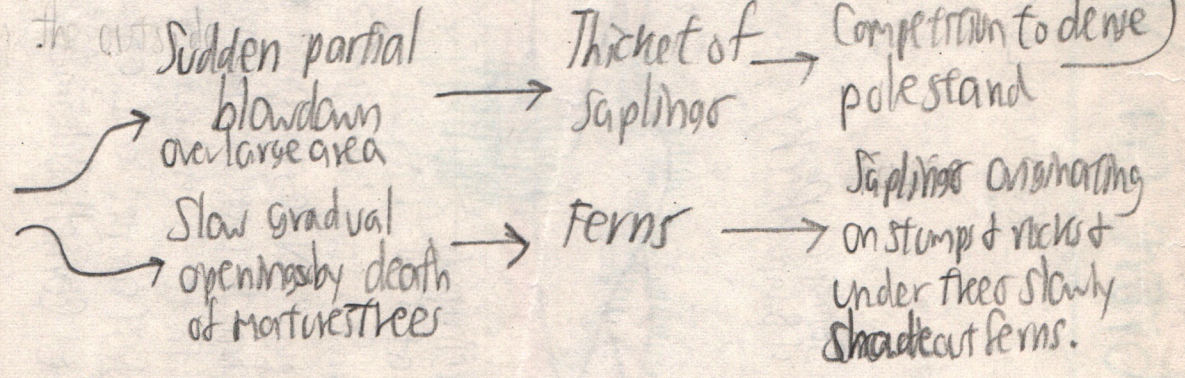 Sudden partial
blowdown
over large area
Thicket of
saplings
Competition to dense
pole stand
Slow gradual
openings by death
of mature trees
Ferns
Saplings originating
on stumps & rocks &
under trees slowly
shade out ferns.